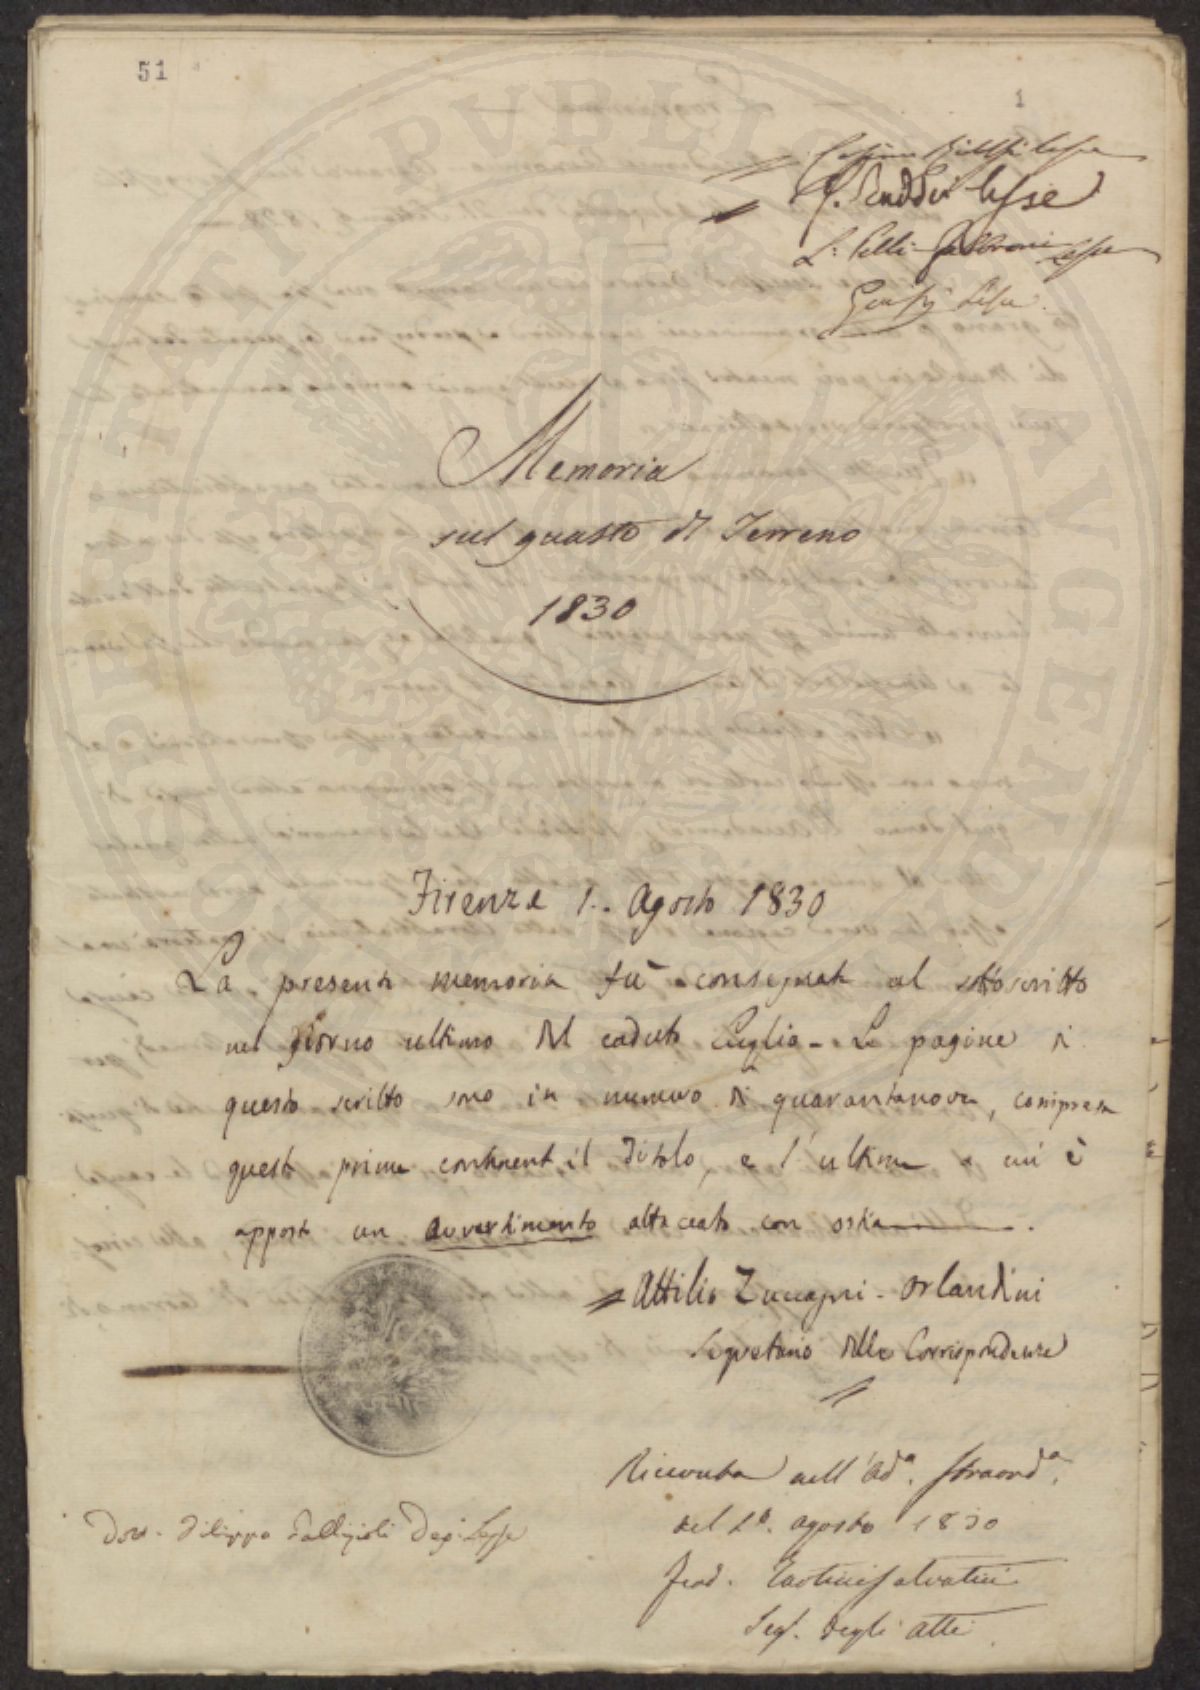 51
1
Cosimo Ridolfi lesse
G. Taddei lesse
L. Pelli-Fabbroni lesse
lesse.
Memoria
sul guasto di Terreno
1830
Firenze 1.. Agosto 1830
La presente memoria fu consegnata al sottoscritto
nel giorno ultimo del caduto Luglio - Le pagine di
questo scritto sono in numero di quarantanove, compresa
questa prima contenente il titolo, e l'ultima a cui è
apposto un avvertimento attaccato con ostia.
Attilio Zuccagni-Orlandini
Segretario delle Corrispondenze
Ricevuta nell'Ad.a Straord.a
del 1º. agosto 1830
Ferd. Tartini Salvatici
Seg. degli atti
Dott. Filippo Gallizioli Dep. Lesse
SPPHITAT PVBLIC AVGEN